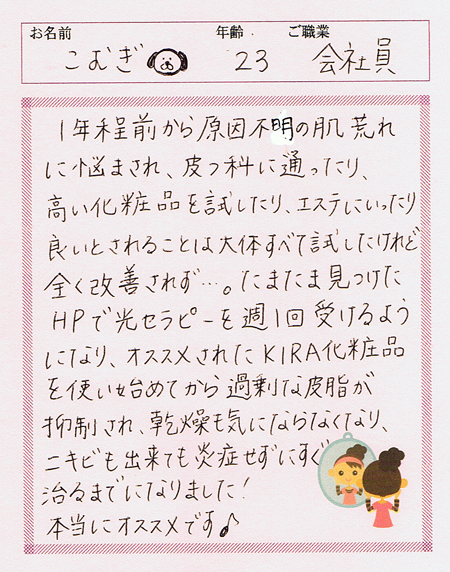 お名前 年齢 ご職業
こむぎ 23 会社員
1年程前から原因不明の肌荒れ
に悩まされ、皮フ科に通ったり、
高い化粧品を試したり、エステにいったり
良いとされることは大体すべて試したけれど
全く改善されず…。たまたま見つけた
HPで光セラピーを週1回受けるよう
になり、オススメされたKIRA化粧品
を使い始めてから過剰な皮脂が
抑制され、乾燥も気にならなくなり、
ニキビも出来ても炎症せずにすぐ
治るまでになりました!
本当にオススメです♪